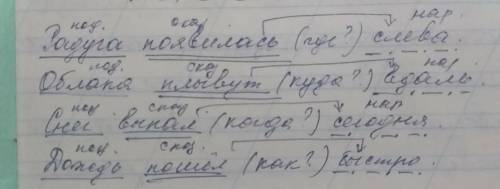 под. сказ. нар.
Радуга появилась (где?) слева.
под. сказ. нар
Облака плывут (куда?) вдаль.
под сказ. нар
Снег выпал (когда?) сегодня.
под. сказ.
Дождь пошёл (как?) быстро.